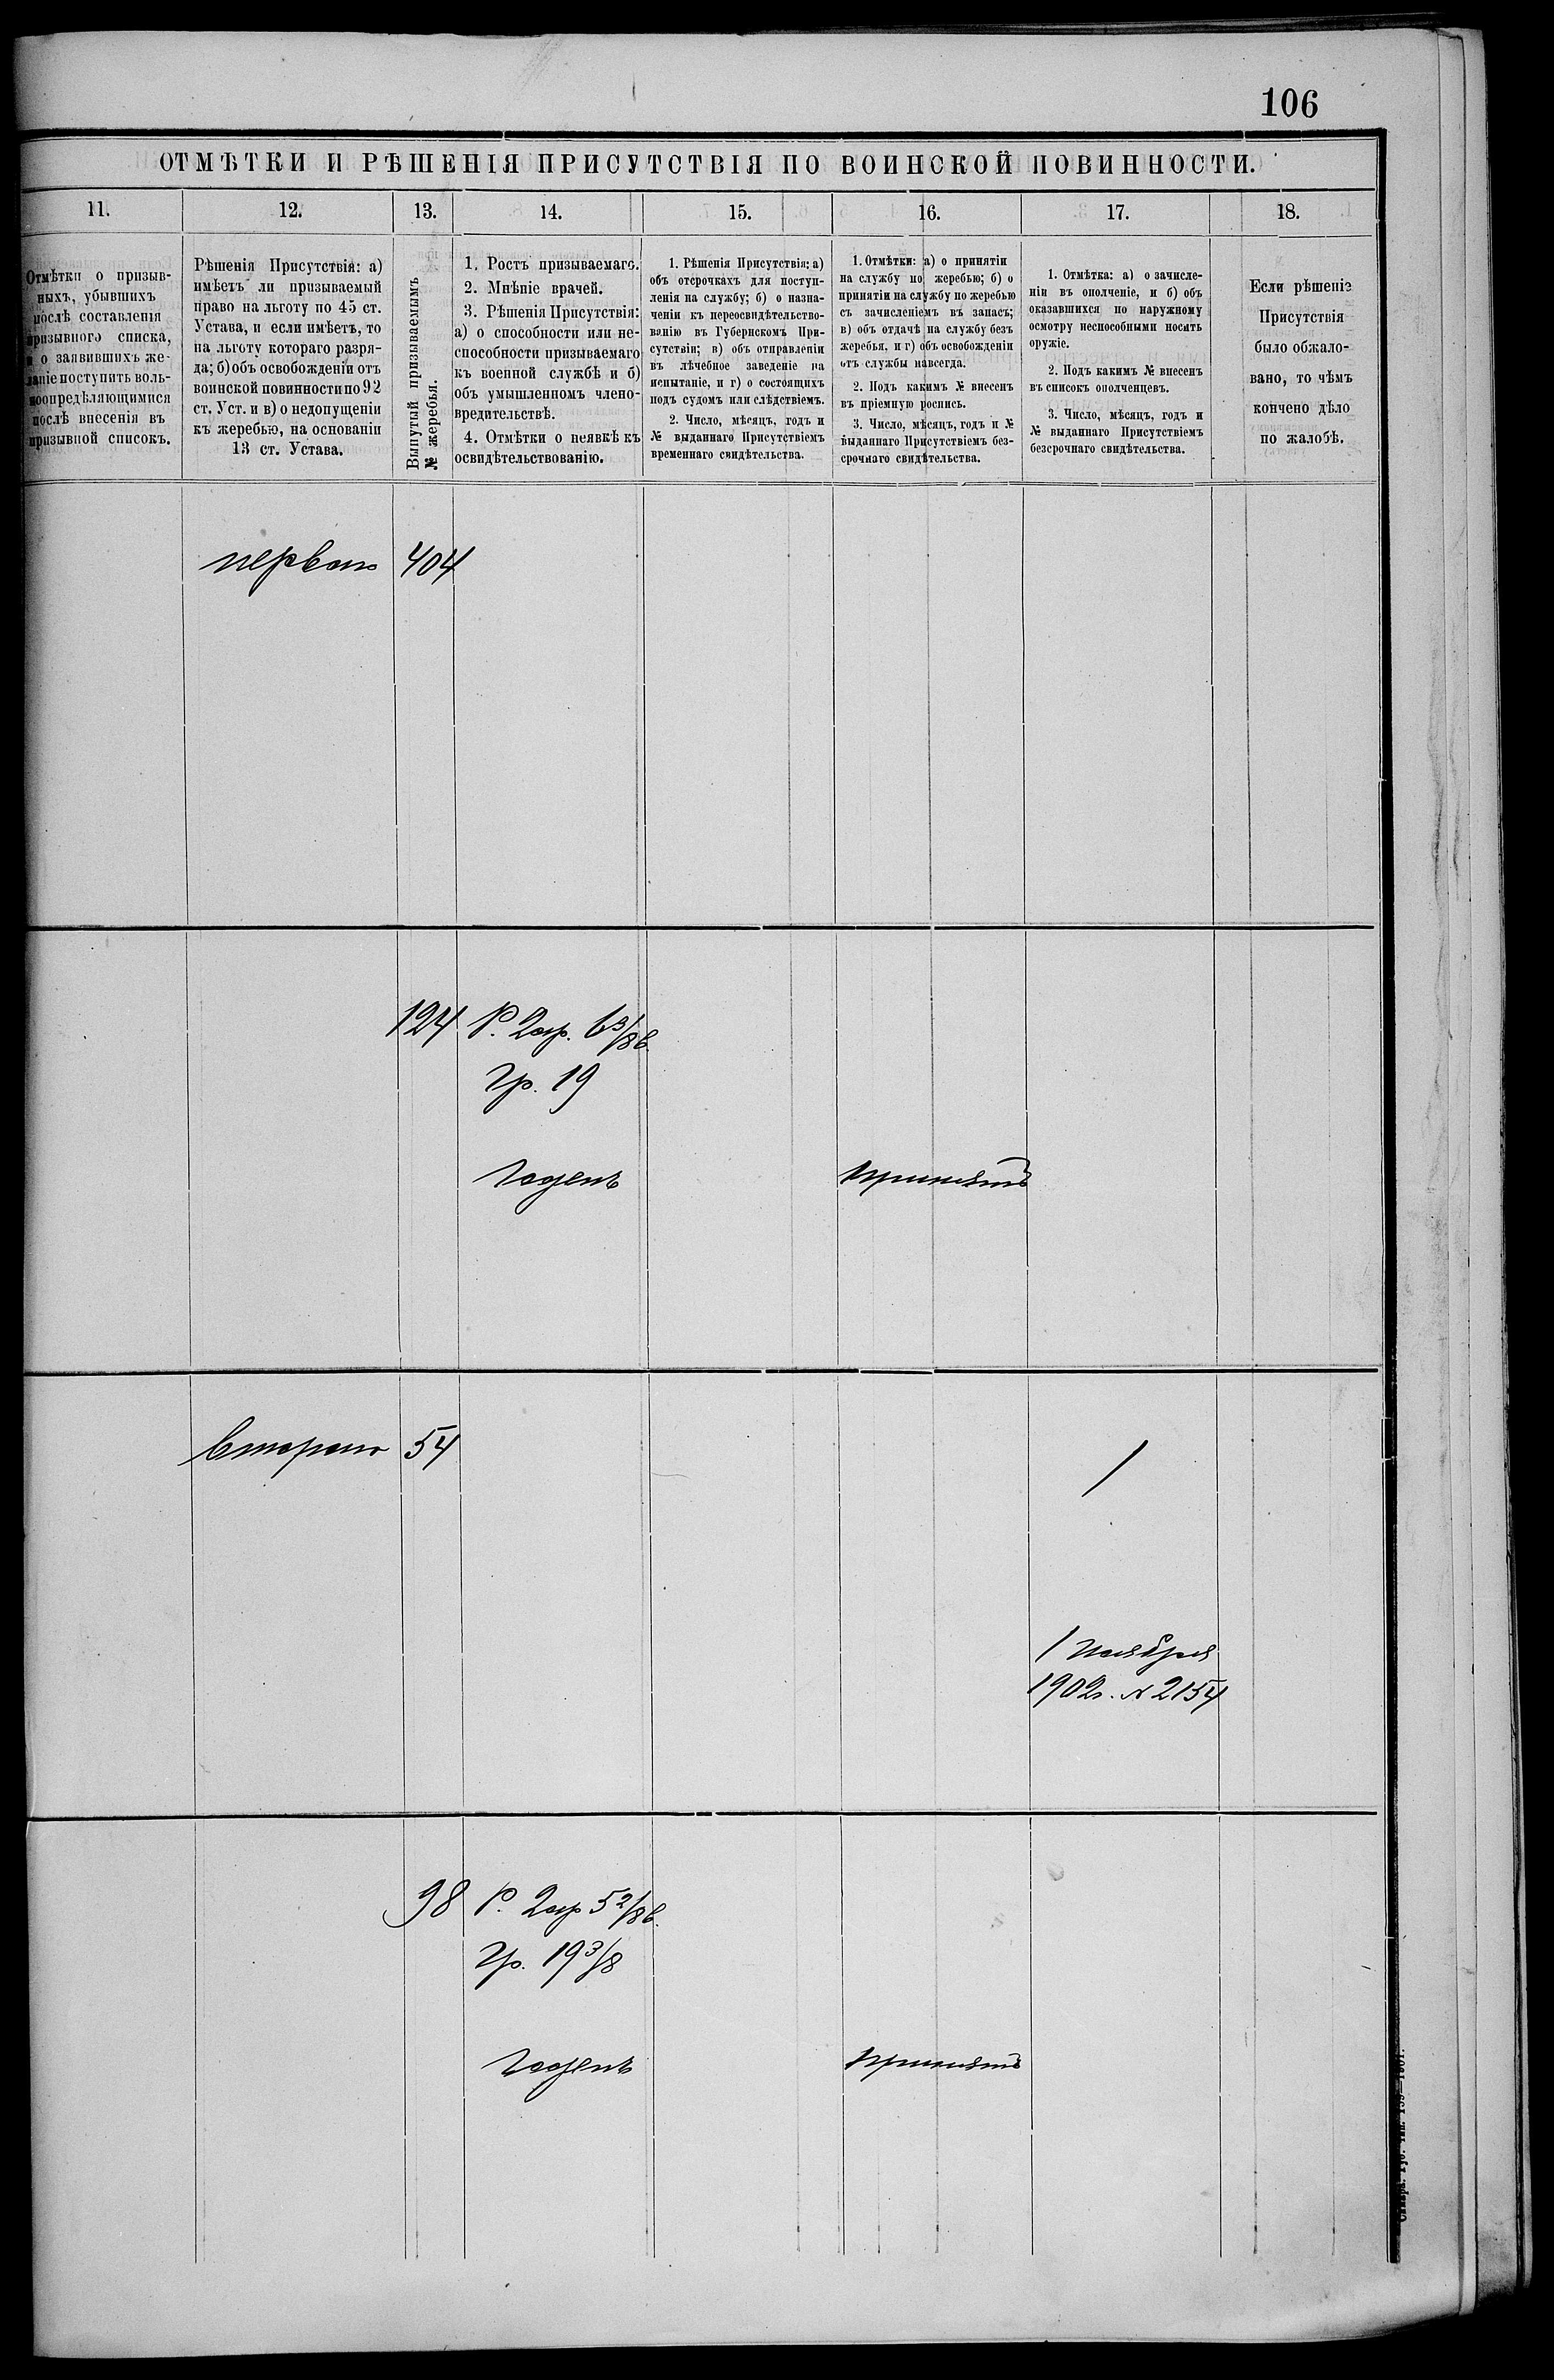 106
ОТМѢТКИ И РѢШЕНІЯ ПРИСУТСТВІЯ ПО ВОИНСКОЙ ПОВИННОСТИ.
11.
12.
13.
14.
15.
16.
17.
18.
Отмѣтки о призыв-
ныхъ, убывшихъ
послѣ составленія
призывного списка,
и о заявившихъ же-
ланіе поступить воль-
ноопредѣляющимися
послѣ внесенія въ
призывной списокъ.
Рѣшенія Присутствія: а)
имѣетъ ли призываемый
право на льготу по 45 ст.
Устава, и если имѣетъ, то
на льготу котораго разря-
да; б) объ освобожденіи отъ
воинской повинности по 92
ст. Уст. и в) о недопущеніи
къ жеребью, на основаніи
13 ст. Устава.
Вынутый призываемымъ
№ жеребья.
1. Ростъ призываемаго.
2. Мнѣніе врачей.
3. Рѣшенія Присутствія:
а) о способности или не-
способности призываемаго
къ военной службѣ и б)
объ умышленномъ члено-
вредительствѣ.
4. Отмѣтки о неявкѣ къ
освидѣтельствованію.
1. Рѣшенія Присутствія: а)
объ отсрочкахъ для поступ-
ленія на службу; б) о назна-
ченіи къ переосвидѣтельство-
ванію въ Губернскомъ При-
сутствіи; в) объ отправленіи
въ лѣчебное заведеніе на
испытаніе, и г) о состоящихъ
подъ судомъ или слѣдствіемъ.
2. Число, мѣсяцъ, годъ и
№ выданнаго Присутствіемъ
временнаго свидѣтельства.
1. Отмѣтки: а) о принятіи
на службу по жеребью; б) о
принятіи на службу по жеребью
съ зачисленіемъ въ запасъ;
в) объ отдачѣ на службу безъ
жеребья, и г) объ освобожденіи
отъ службы навсегда.
2. Подъ какимъ № внесенъ
въ пріемную роспись.
3. Число, мѣсяцъ, годъ и №
выданнаго Присутствіемъ без-
срочнаго свидѣтельства.
1. Отмѣтка: а) о зачисле-
ніи въ ополченіе, и б) объ
оказавшихся по наружному
осмотру неспособными носить
оружіе.
2. Подъ какимъ № внесенъ
въ списокъ ополченцевъ.
3. Число, мѣсяцъ, годъ и
№ выданнаго Присутствіемъ
безсрочнаго свидѣтельства.
Если рѣшеніе
Присутствія
было обжало-
вано, то чѣмъ
кончено дѣло
по жалобѣ.
перваго 404
124 Р. 2 ар. 6 3/8 в.
Гр. 19
Годенъ принятъ
Втораго 54 1
1 Ноября
1902 г. № 2154
98 Р. 2 ар 5 2/8 в.
Гр. 19 3/8
Годенъ принятъ